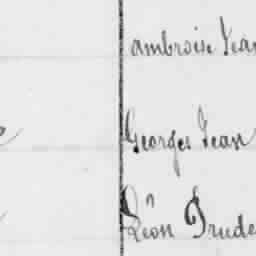 ambroise Jean
Georges Jean
Léon Prude